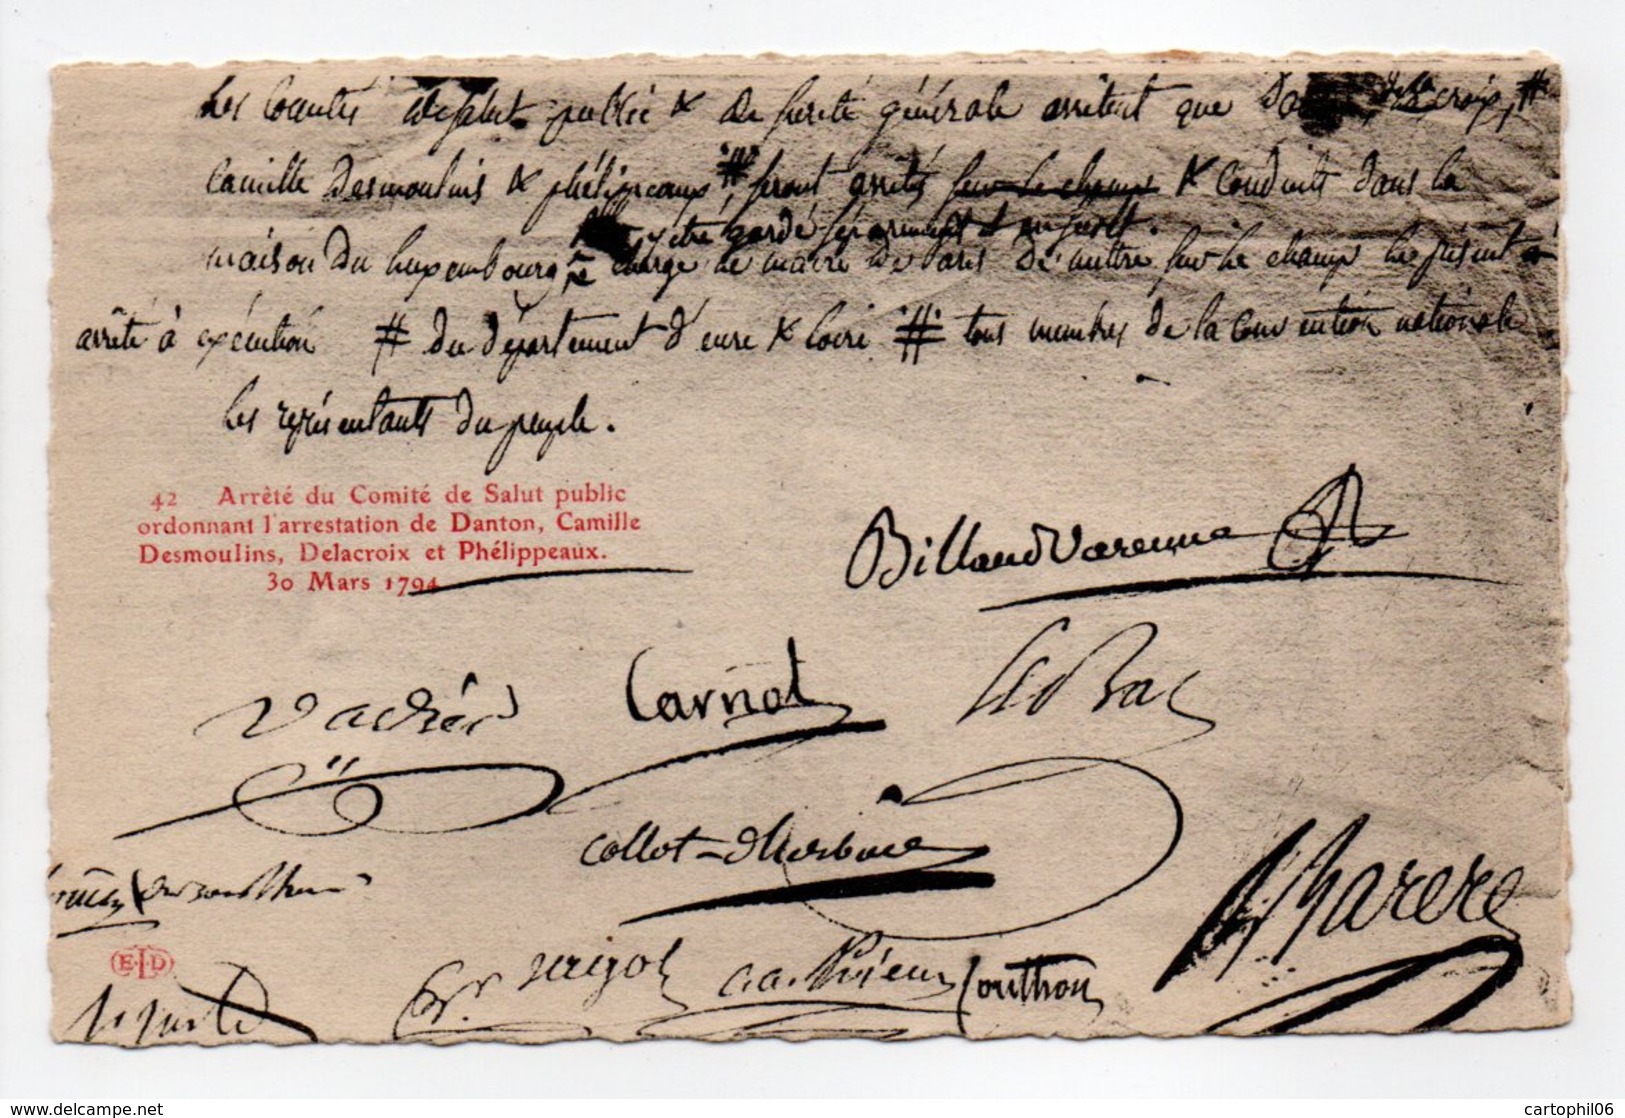 Les Comités de salut public & de sureté générale arrêtent que Delacroix, #
Camille Desmoulins & phélippeaux, #, seront arrêtés sur le champ & Conduits dans la
y être gardé séparément & au secret.
maison du Luxembourg chargé le maire de Paris de mettre sur le champ le présent
arrêté à exécution # du département d'eure & loire # tous membres de la Convention nationale
Les représentants du peuple.
42 Arrêté du Comité de Salut public
ordonnant l'arrestation de Danton, Camille
Desmoulins, Delacroix et Phélippeaux.
30 Mars 1794
Billaud Varenne
Vadier Carnot Le Bas
Collot-d'herbois
B. Barere
E.L.D
Couthon
cartophil06